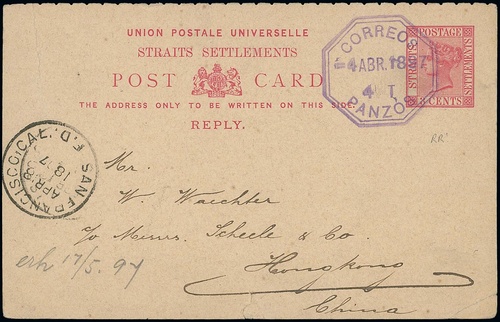 UNION POSTALE UNIVERSELLE
STRAITS SETTLEMENTS
POST CARD
THE ADDRESS ONLY TO BE WRITTEN ON THIS SIDE.
REPLY.
CORREOS
4 ABR. 1897
4 T.
PANZOS
STRAITS
POSTAGE
SETTLEMENTS
3 CENTS
SAN FRANCISCO, CAL. F.D.
APR
Mr.
W. Waechter
c/o Messrs. Scheele & Co.
Hongkong
China
erh 17/5. 97